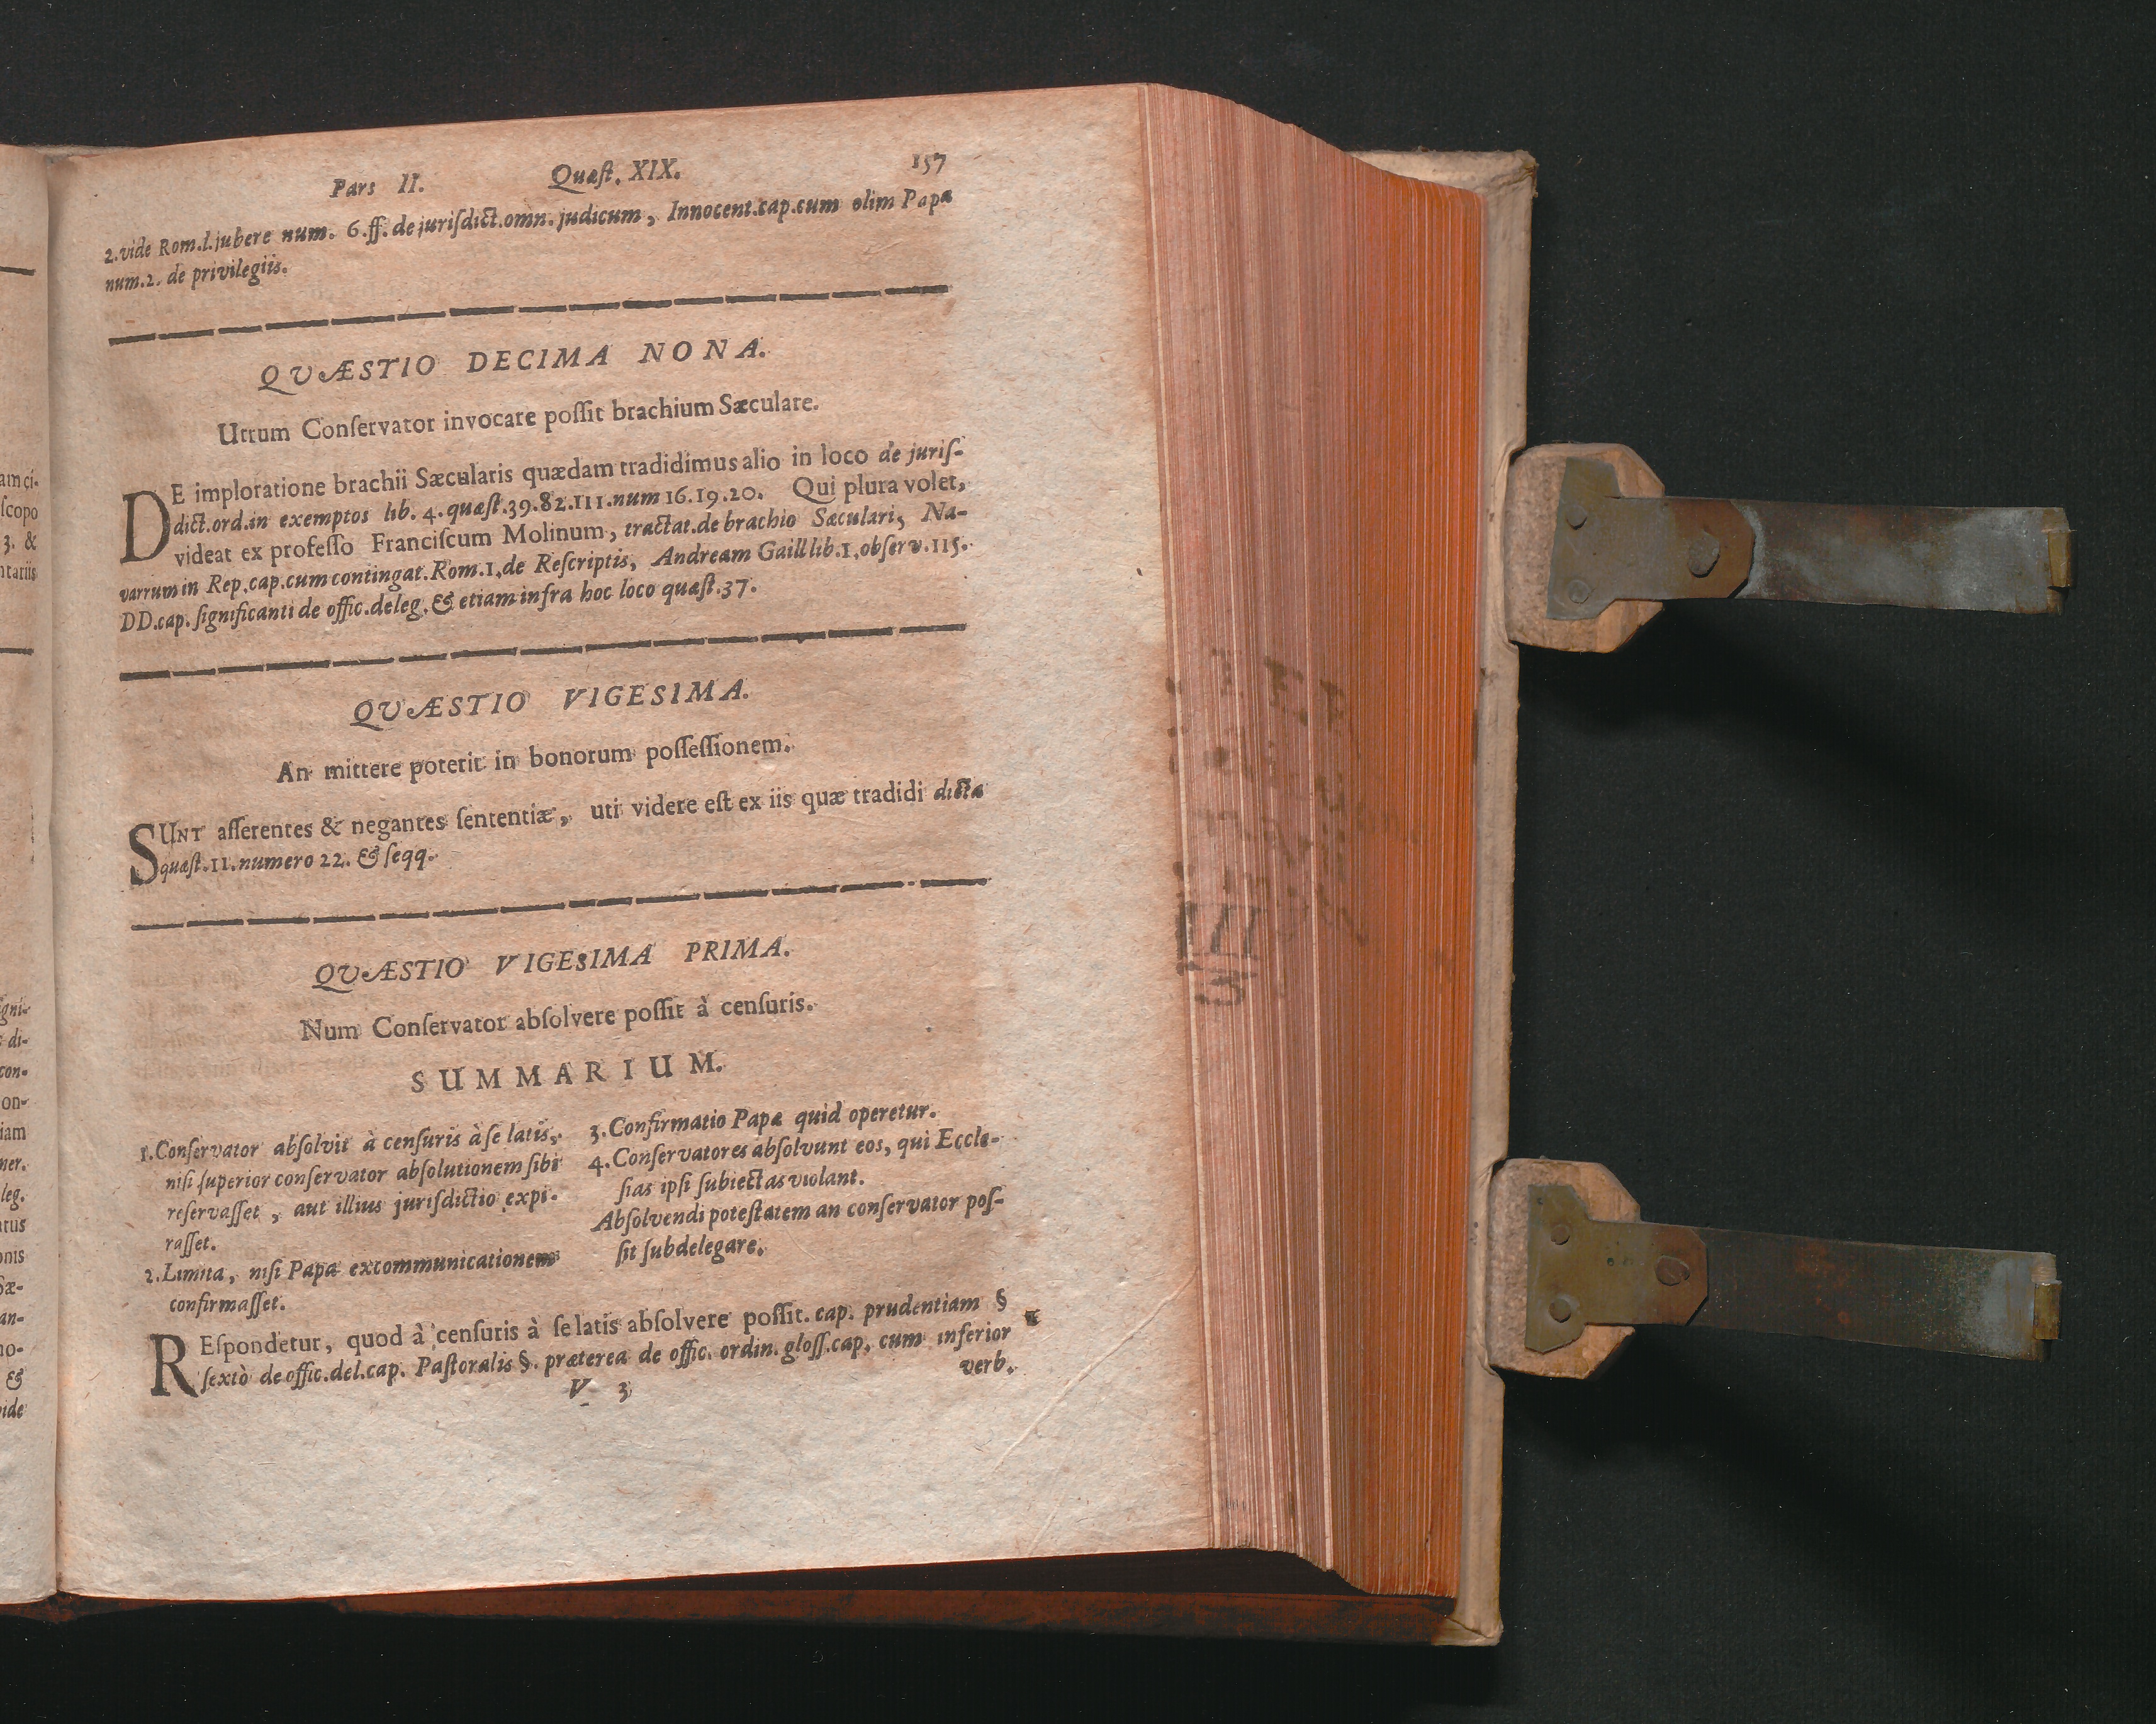 Pars II. Quæſt. XIX. 157
2. vide Rom. l. jubere num. 6. ff. de juriſdict. omn. judicum, Innocent. cap. cum olim Papa
num. 2. de privilegiis.
QUÆSTIO DECIMA NONA.
Utrum Conſervator invocare poſſit brachium Sæculare.
DE imploratione brachii Sæcularis quædam tradidimus alio in loco de juriſ-
dict. ord. in exemptos lib. 4. quæſt. 39. 82. 111. num 16. 19. 20. Qui plura volet,
videat ex profeſſo Franciſcum Molinum, tractat. de brachio Sæculari, Na-
varrum in Rep. cap. cum contingat. Rom. 1. de Reſcriptis, Andream Gaill lib. 1. obſerv. 115.
DD. cap. ſignificanti de offic. deleg. & etiam infra hoc loco quæſt. 37.
QUÆSTIO VIGESIMA.
An mittere poterit in bonorum poſſeſſionem.
SUNT aſſerentes & negantes ſententiæ, uti videre eſt ex iis quæ tradidi dicta
quæſt. 11. numero 22. & ſeqq.
QUÆSTIO VIGESIMA PRIMA.
Num Conſervator abſolvere poſſit à cenſuris.
SUMMARIUM.
1. Conſervator abſolvit à cenſuris à ſe latis,
niſi ſuperior conſervator abſolutionem ſibi
reſervaſſet, aut illius jurisdictio expi-
raſſet.
2. Limita, niſi Papa excommunicationem
confirmaſſet.
3. Confirmatio Papæ quid operetur.
4. Conſervatores abſolvunt eos, qui Eccle-
ſias ipſi ſubiectas violant.
Abſolvendi poteſtatem an conſervator poſ-
ſit ſubdelegare.
REſpondetur, quod à cenſuris à ſe latis abſolvere poſſit. cap. prudentiam §
ſextò de offic. del. cap. Paſtoralis §. præterea de offic. ordin. gloſſ. cap. cum inferior
V 3 verb.